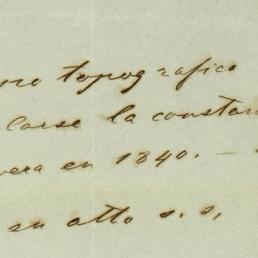 ro topografico
larse la constan
vera en 1840. —
su atto s. s,